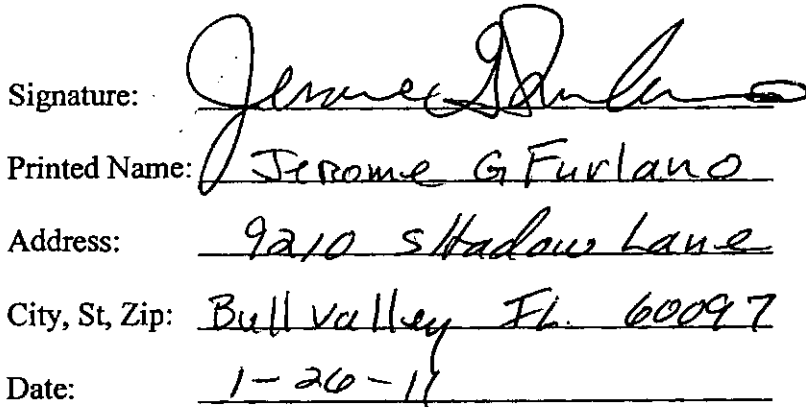 Signature: Jerome G Furlano
Printed Name: Jerome G Furlano
Address: 9210 SHadow Lane
City, St, Zip: Bull valley IL. 60097
Date: 1-26-11